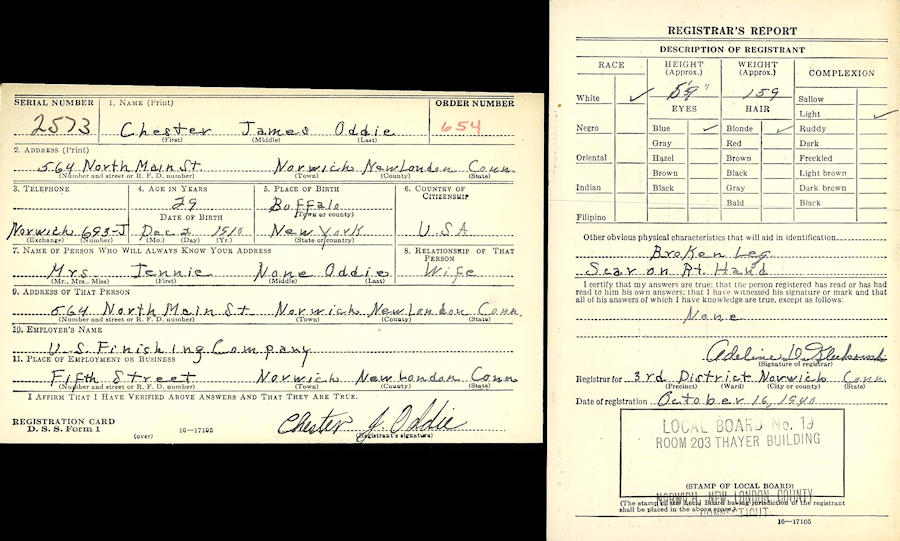 SERIAL NUMBER 1. NAME (Print) ORDER NUMBER
2573 Chester James Oddie 654
(First) (Middle) (Last)
2. ADDRESS (Print)
564 North Main St. Norwich New London Conn
(Number and street or R. F. D. number) (Town) (County) (State)
3. TELEPHONE 4. AGE IN YEARS 5. PLACE OF BIRTH 6. COUNTRY OF CITIZENSHIP
29 Buffalo
DATE OF BIRTH (Town or county)
Norwich 693-J Dec 2 1910 New York U.S.A
(Exchange) (Number) (Mo.) (Day) (Yr.) (State or country)
7. NAME OF PERSON WHO WILL ALWAYS KNOW YOUR ADDRESS 8. RELATIONSHIP OF THAT PERSON
Mrs Jennie None Oddie Wife
(Mr., Mrs., Miss) (First) (Middle) (Last)
9. ADDRESS OF THAT PERSON
564 North Main St Norwich New London Conn
(Number and street or R. F. D. number) (Town) (County) (State)
10. EMPLOYER'S NAME
U.S. Finishing Company
11. PLACE OF EMPLOYMENT OR BUSINESS
Fifth Street Norwich New London Conn
(Number and street or R. F. D. number) (Town) (County) (State)
I AFFIRM THAT I HAVE VERIFIED ABOVE ANSWERS AND THAT THEY ARE TRUE.
REGISTRATION CARD
D. S. S. Form 1 (over) 16—17105
Chester J Oddie
(Registrant's signature)
REGISTRAR'S REPORT
DESCRIPTION OF REGISTRANT
RACE HEIGHT (Approx.) WEIGHT (Approx.) COMPLEXION
White ✓ 5'9" 159 Sallow
EYES HAIR Light ✓
Negro Blue ✓ Blonde ✓ Ruddy
Gray Red Dark
Oriental Hazel Brown Freckled
Brown Black Light brown
Indian Black Gray Dark brown
Bald Black
Filipino
Other obvious physical characteristics that will aid in identification
Broken Leg
Scar on Rt. Hand
I certify that my answers are true; that the person registered has read or has had
read to him his own answers; that I have witnessed his signature or mark and that
all of his answers of which I have knowledge are true, except as follows:
None
Adeline D.
(Signature of registrar)
Registrar for 3rd District Norwich Conn
(Precinct) (Ward) (City or county) (State)
Date of registration October 16, 1940
LOCAL BOARD No. 19
ROOM 203 THAYER BUILDING
(STAMP OF LOCAL BOARD)
NORWICH, NEW LONDON COUNTY
(The stamp of the Local Board having jurisdiction of the registrant
shall be placed in the above space.)
CONNECTICUT
16—17105